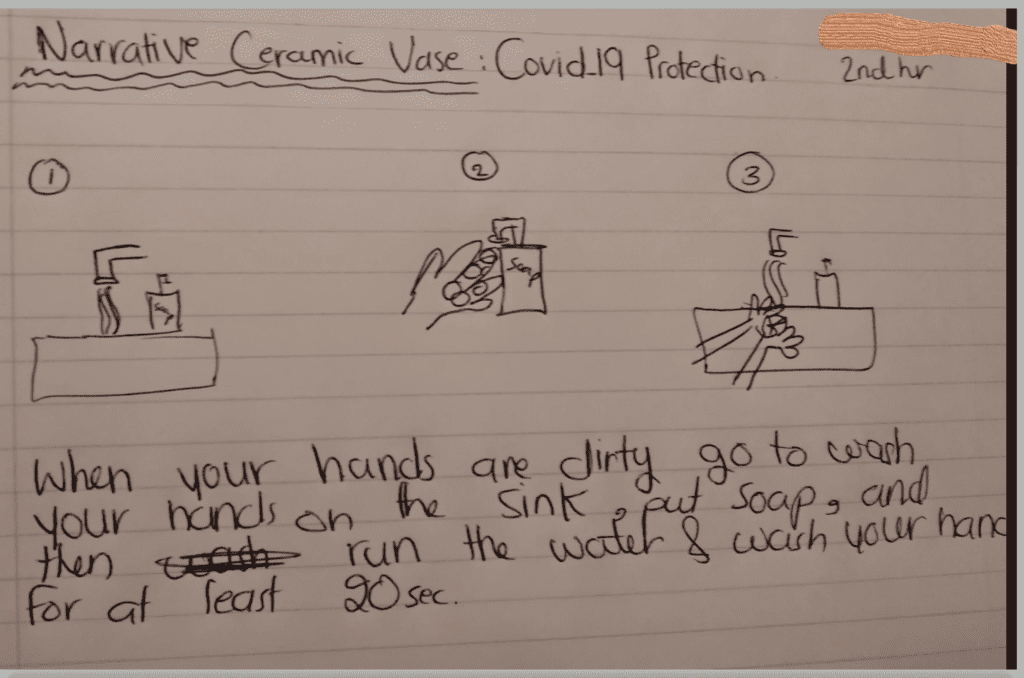 Narrative Ceramic Vase : Covid.19 Protection.
2nd hr
1
2
3
Soap
When your hands are dirty go to wash
your hands on the sink, put soap, and
then wash run the water & wash your hand
for at least 20 sec.